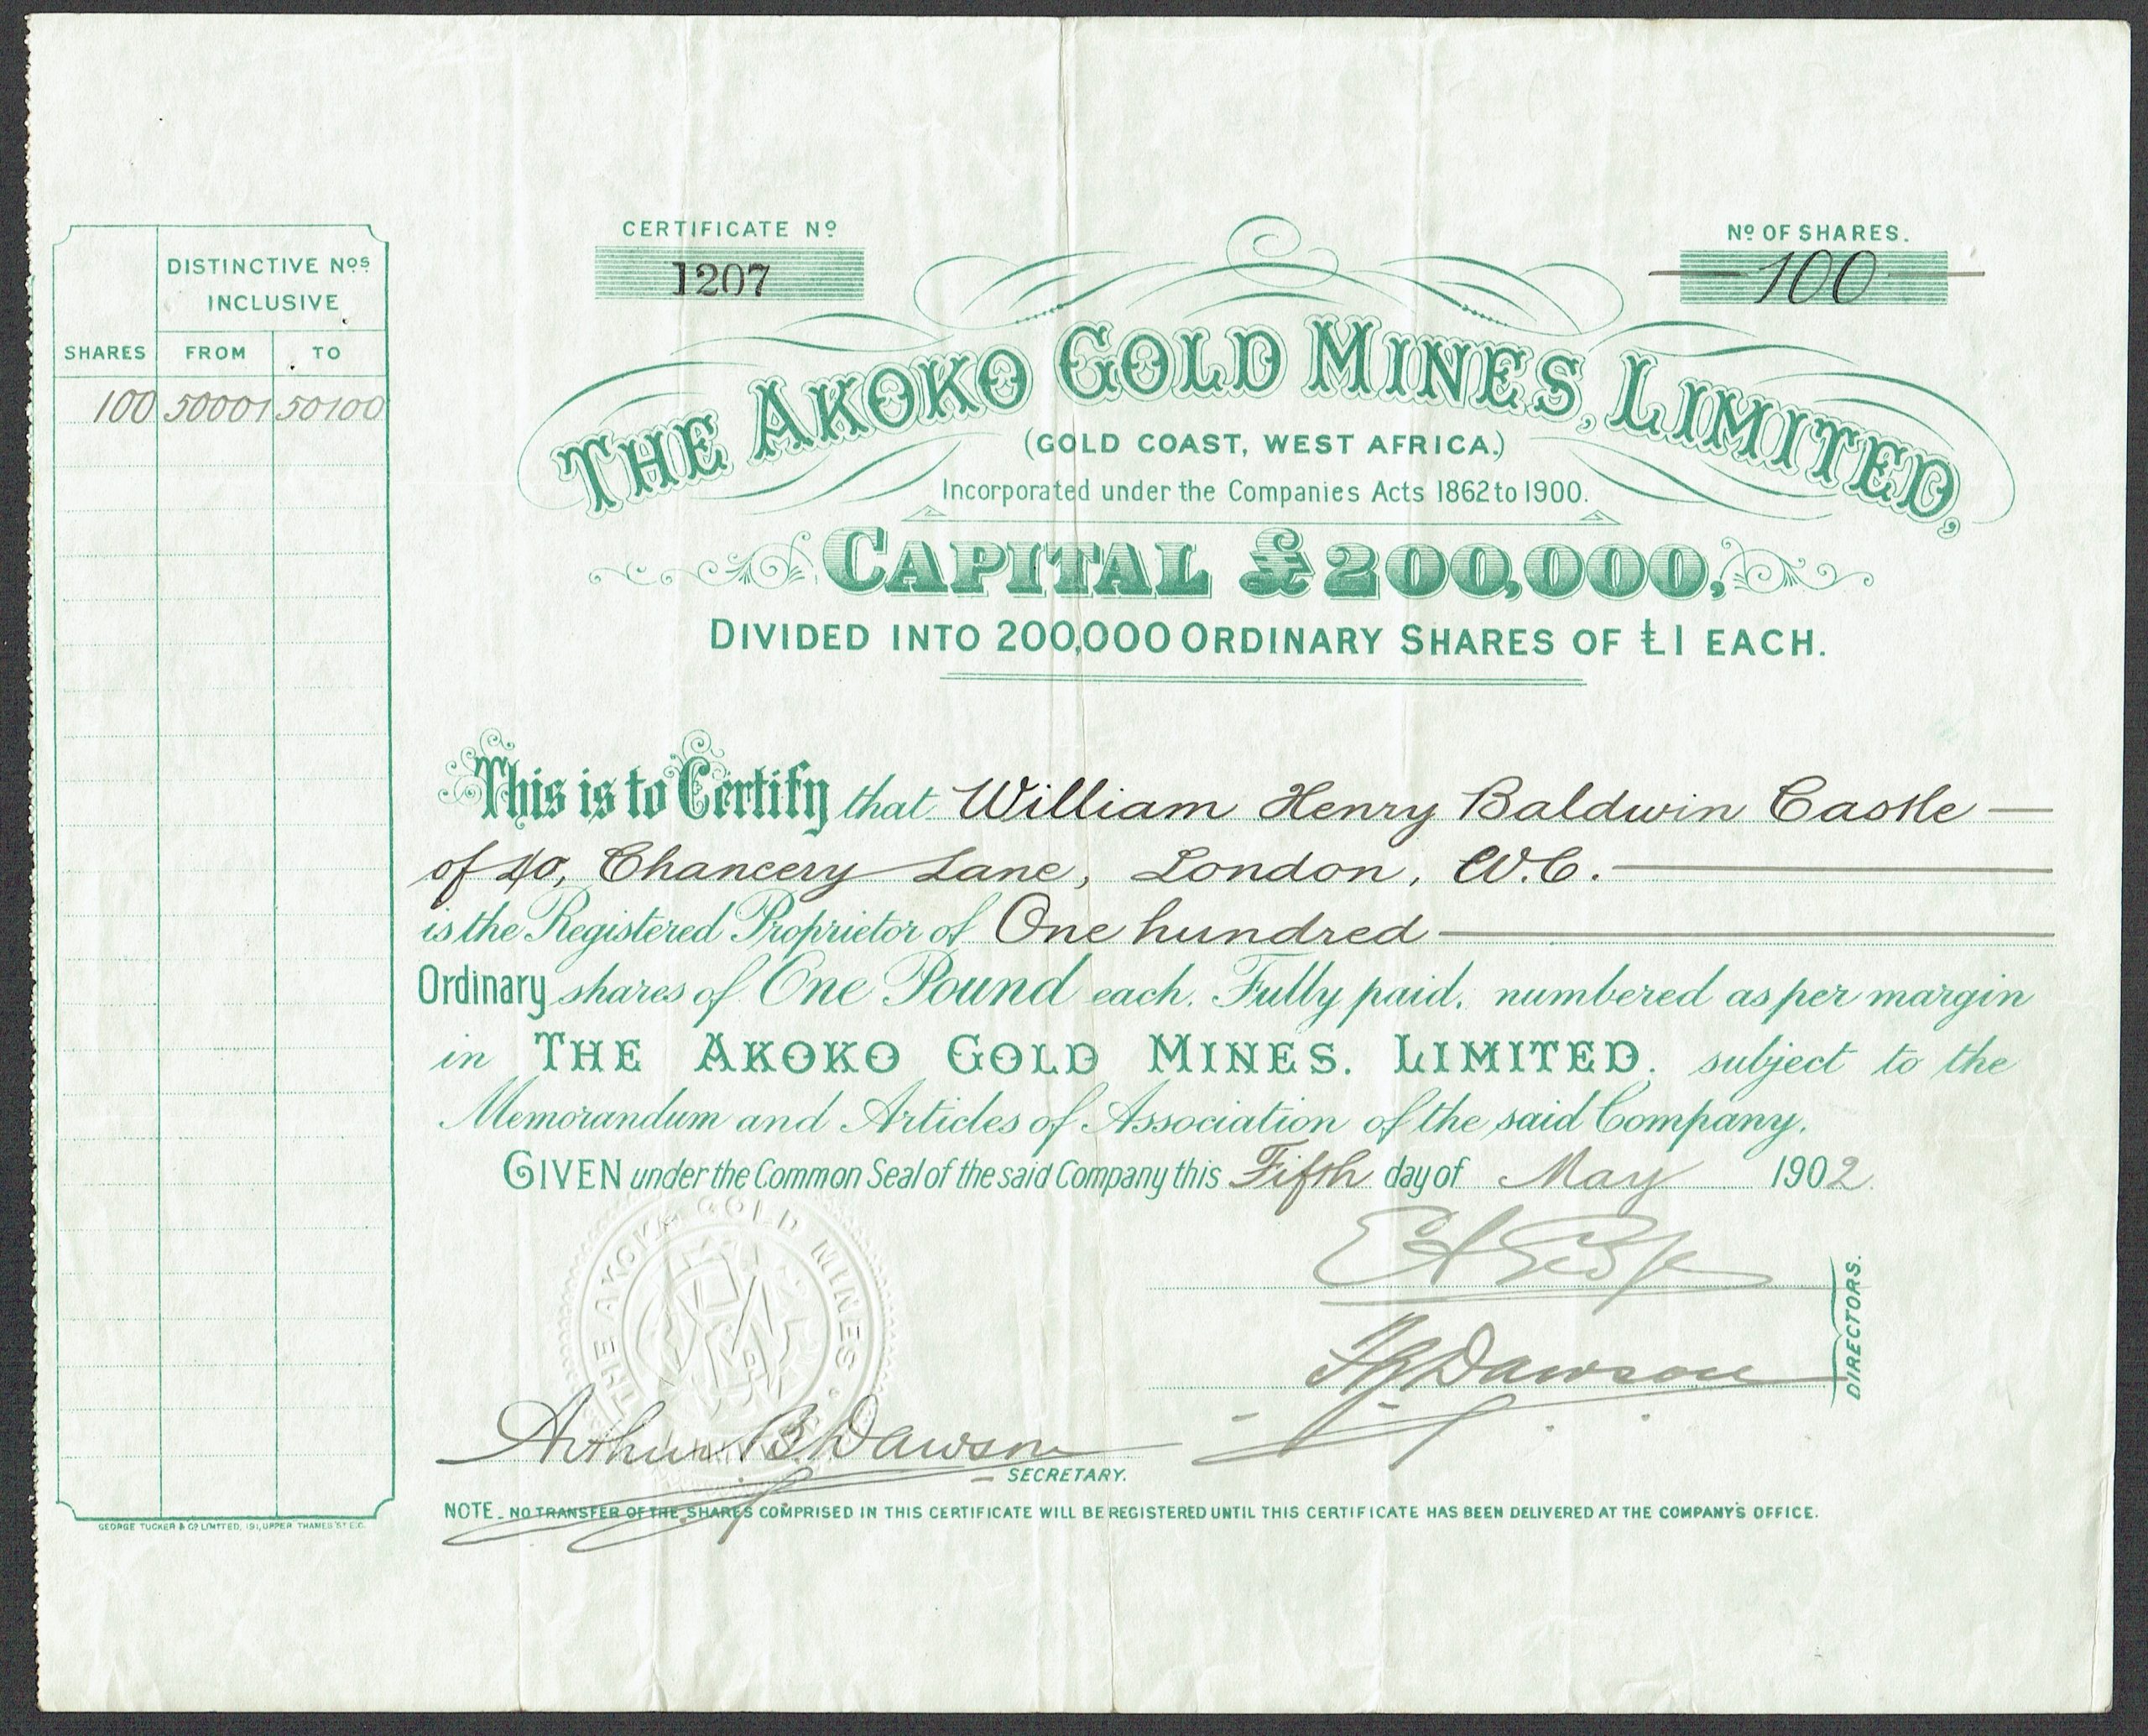 CERTIFICATE Nº
1207
Nº OF SHARES.
100
DISTINCTIVE Nºs
INCLUSIVE
SHARES FROM TO
100 50001 50100
THE AKOKO GOLD MINES, LIMITED,
(GOLD COAST, WEST AFRICA.)
Incorporated under the Companies Acts 1862 to 1900.
CAPITAL £200,000,
DIVIDED INTO 200,000 ORDINARY SHARES OF £1 EACH.
This is to Certify that William Henry Baldwin Castle
of 40, Chancery Lane, London, W.C.
is the Registered Proprietor of One hundred
Ordinary shares of One Pound each. Fully paid, numbered as per margin
in THE AKOKO GOLD MINES. LIMITED. subject to the
Memorandum and Articles of Association of the said Company.
GIVEN under the Common Seal of the said Company this Fifth day of May 1902.
THE AKOKO GOLD MINES
Dawson
DIRECTORS.
Arthur B. Dawson
SECRETARY.
NOTE. NO TRANSFER OF THE SHARES COMPRISED IN THIS CERTIFICATE WILL BE REGISTERED UNTIL THIS CERTIFICATE HAS BEEN DELIVERED AT THE COMPANY'S OFFICE.
GEORGE TUCKER & Cº LIMITED, 191, UPPER THAMES ST E.C.